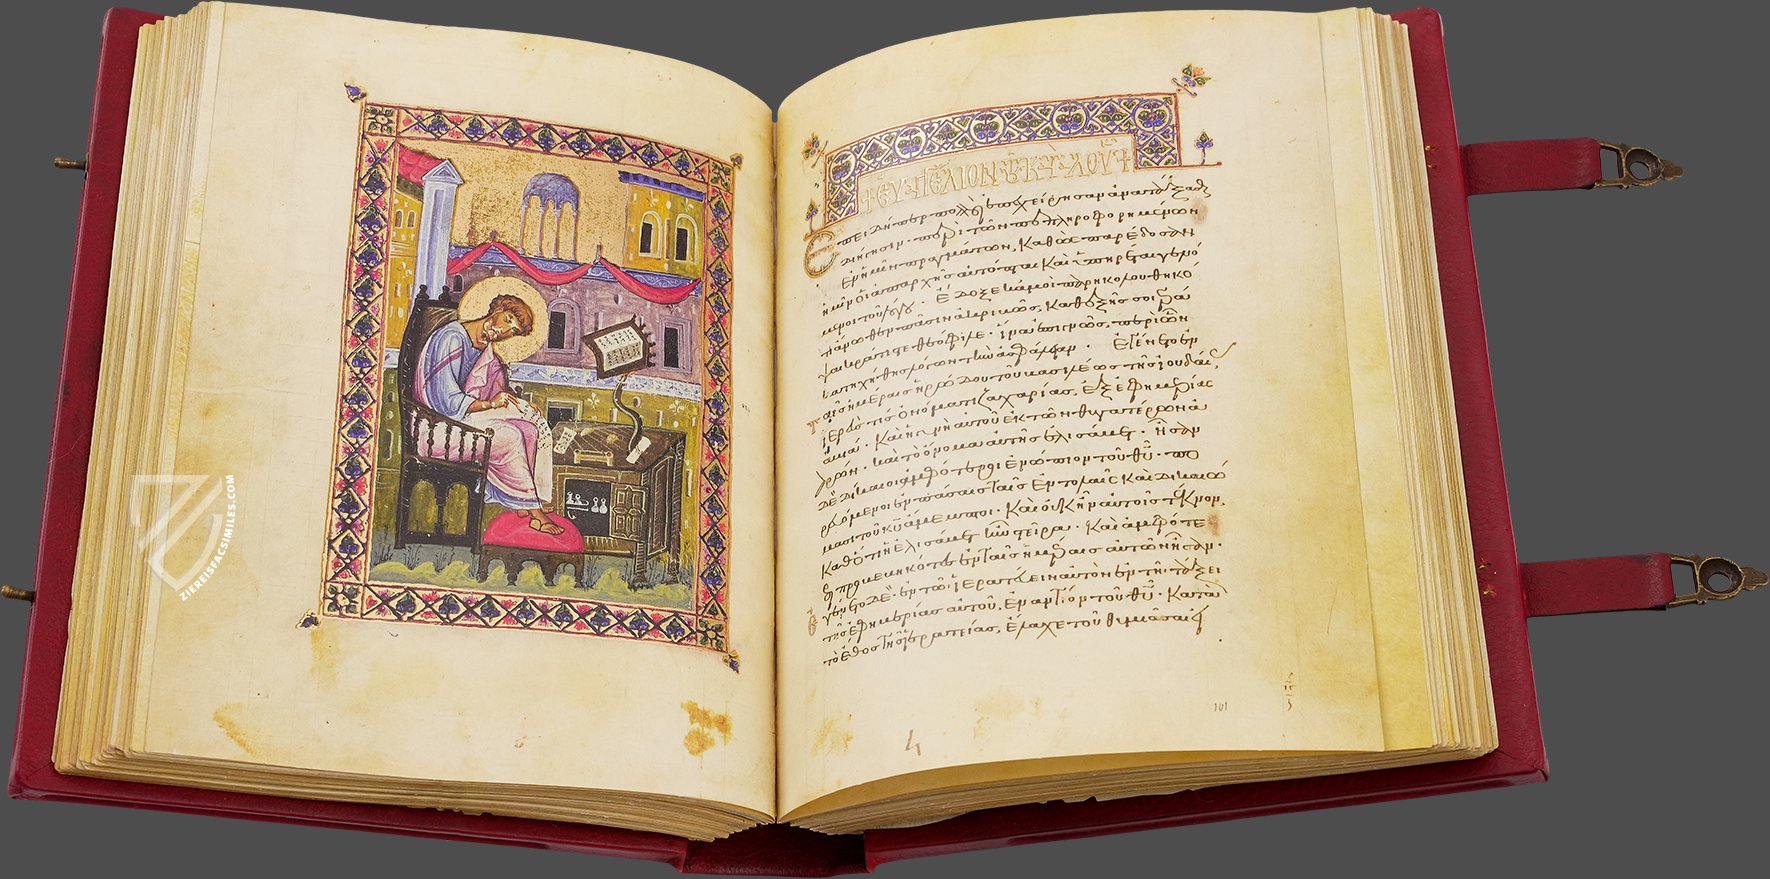 + ΕΥΑΓΓΕΛΙΟΝ ΚΑΤ ΛΟΥ +
Ἐπειδήπερ πολλοὶ ἐπεχείρησαν ἀνατάξασθαι
διήγησιν· περὶ τῶν πεπληροφορημένων
ἐν ἡμῖν πραγμάτων, καθὼς παρέδοσαν
ἡμῖν οἱ ἀπαρχῆς αὐτόπται καὶ ὑπηρέται γενό
μενοι τοῦ λόγου· ἔδοξε κἀμοὶ παρηκολουθηκό
τι ἄνωθεν πᾶσιν ἀκριβῶς, καθεξῆς σοι γρά
ψαι κράτιστε θεόφιλε· ἵνα ἐπιγνῶς, περὶ ὧν
κατηχήθης λόγων τὴν ἀσφάλειαν· Ἐγένετο ἐν
ταῖς ἡμέραις ἡρώδου τοῦ βασιλέως τῆς ἰουδαίας
ἱερεύς τις ὀνόματι ζαχαρίας, ἐξ ἐφημερίας
ἀβιά· καὶ ἡ γυνὴ αὐτοῦ ἐκ τῶν θυγατέρων ἀα
ρών· καὶ τὸ ὄνομα αὐτῆς ἐλισάβετ· ἦσαν
δὲ δίκαιοι ἀμφότεροι ἐνώπιον τοῦ θυ· πο
ρευόμενοι ἐν πάσαις ταῖς ἐντολαῖς καὶ δικαιώ
μασι τοῦ κυ ἄμεμπτοι· καὶ οὐκ ἦν αὐτοῖς τέκνον,
καθότι ἡ ἐλισάβετ ἦν στεῖρα· καὶ ἀμφότε
ροι προβεβηκότες ἐν ταῖς ἡμέραις αὐτῶν ἦσαν·
ἐγένετο δὲ ἐν τῷ ἱερατεύειν αὐτὸν ἐν τῇ τάξει
τῆς ἐφημερίας αὐτοῦ, ἐναντίον τοῦ θυ· κατὰ
τὸ ἔθος τῆς ἱερατείας, ἔλαχε τοῦ θυμιᾶσαι
101
ZIEREISFACSIMILES.COM